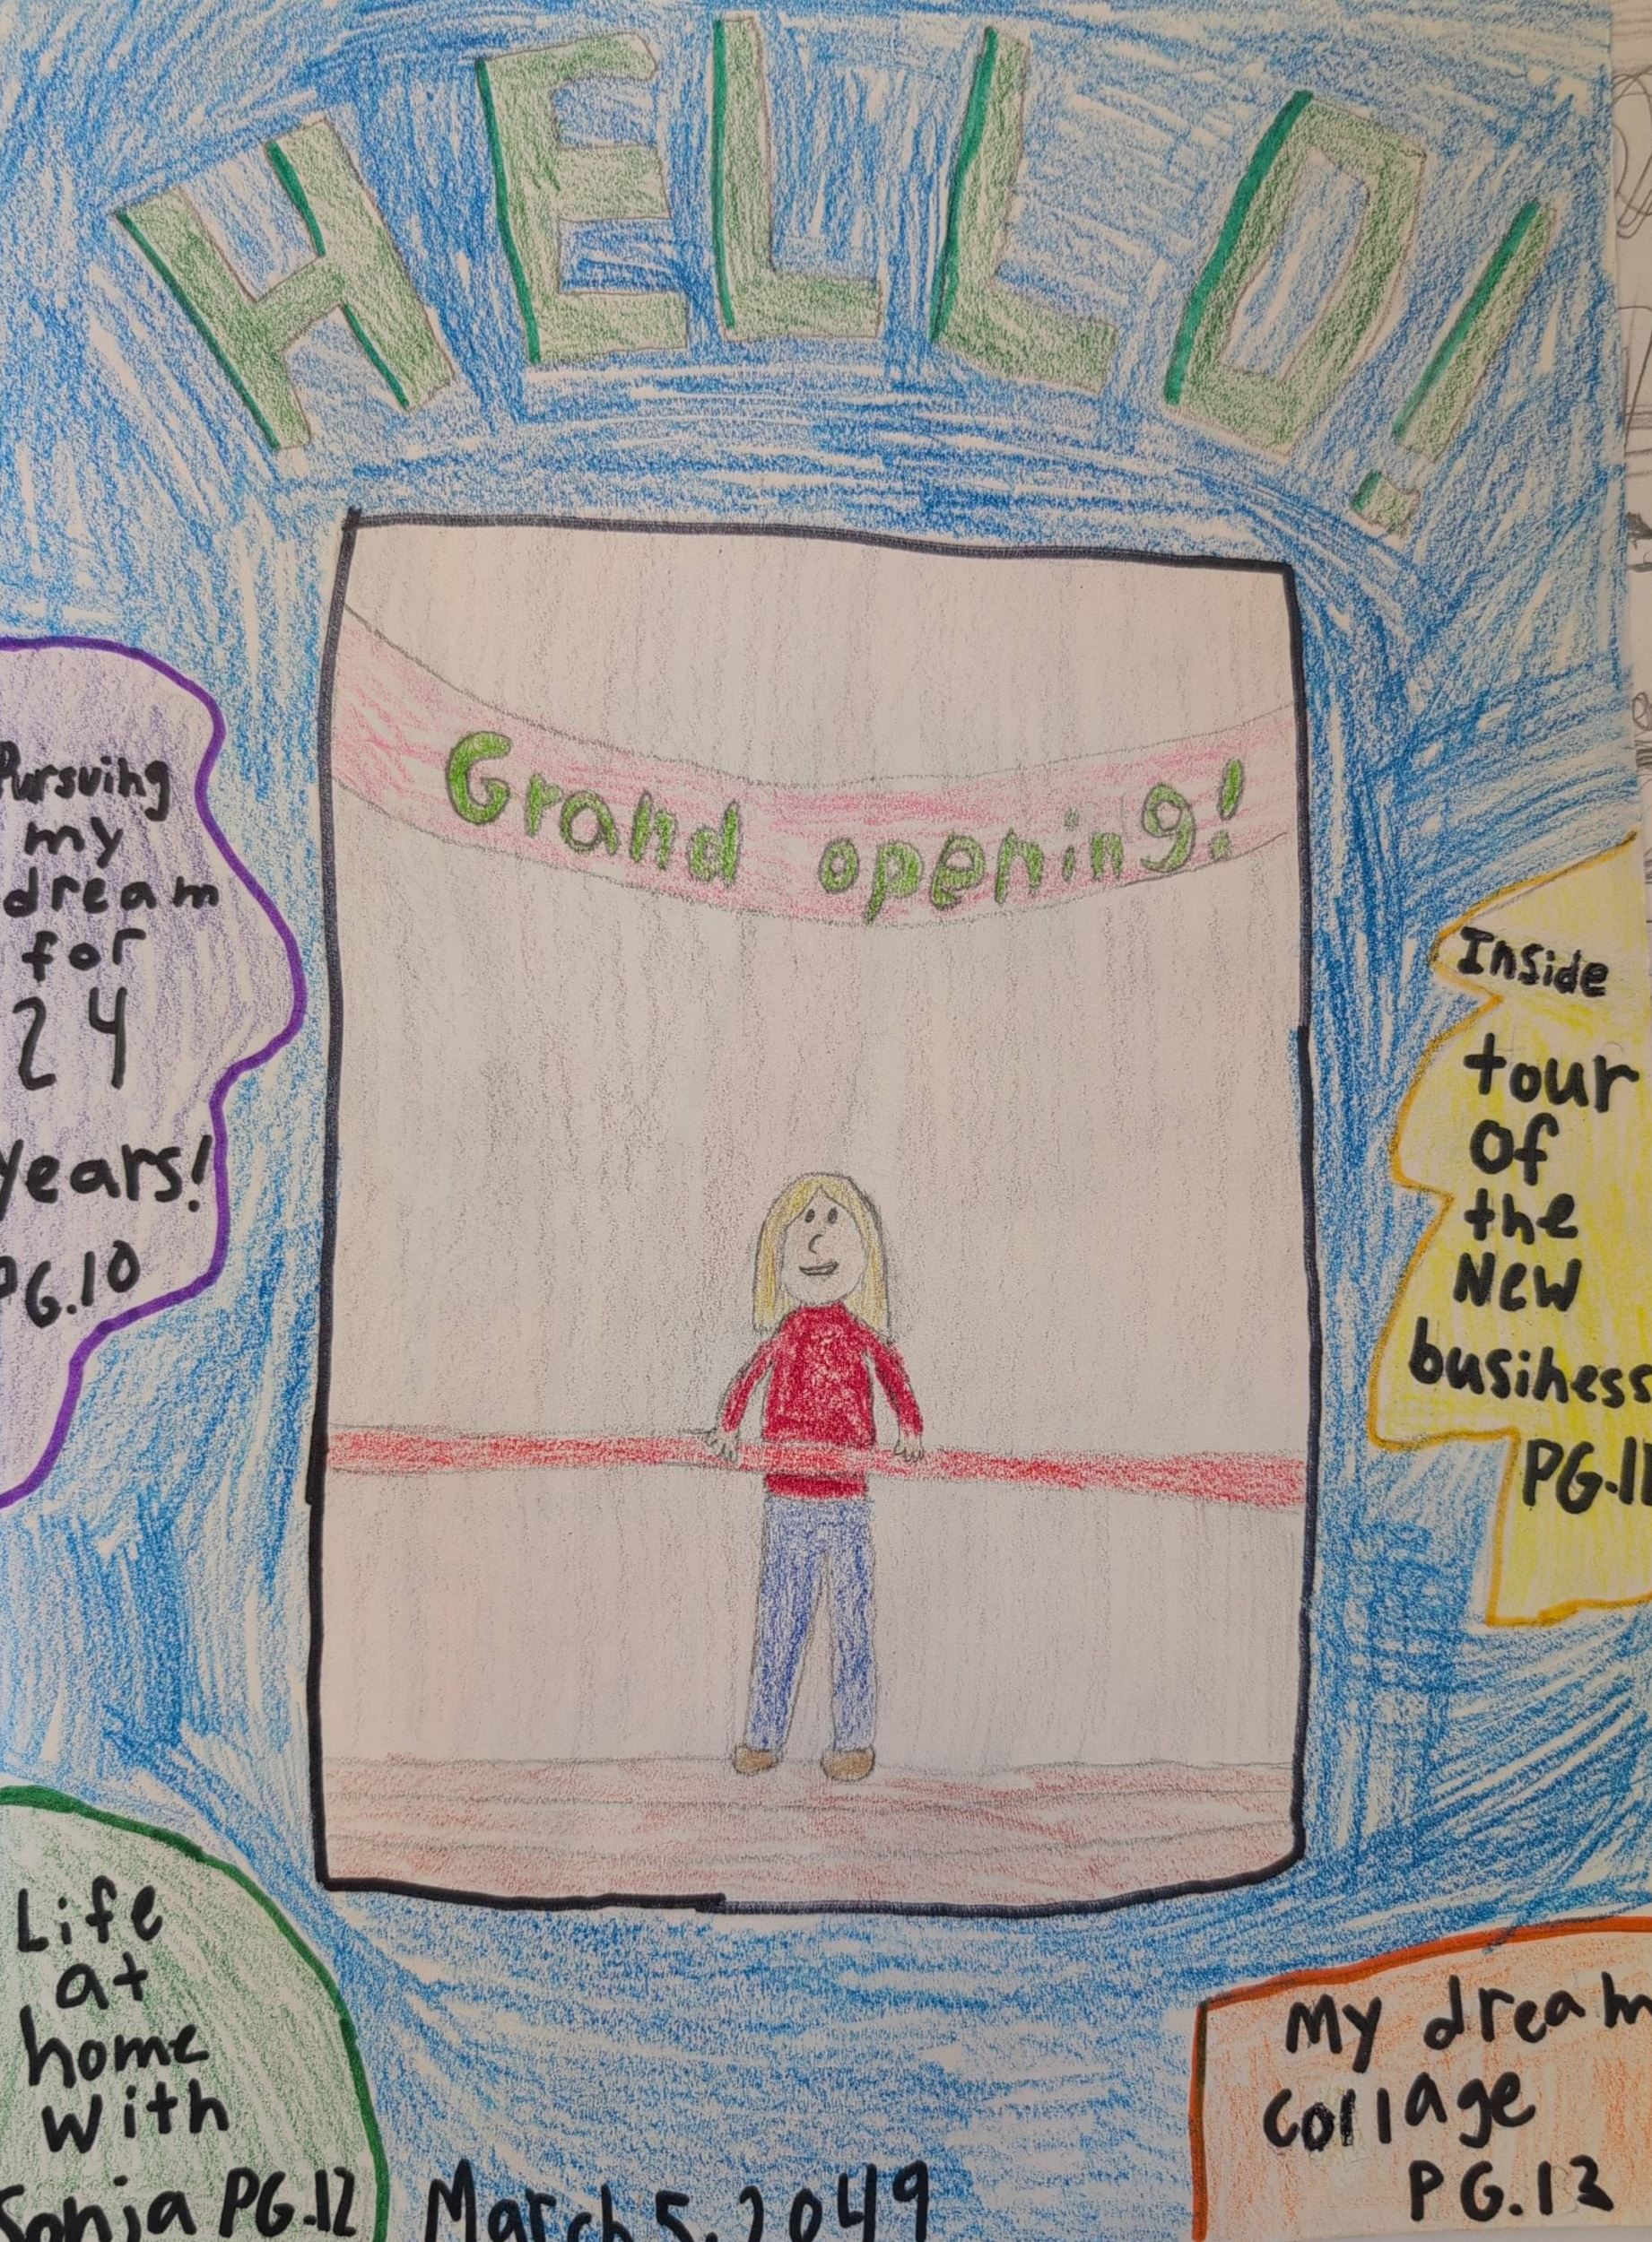 HELLO!
Grand opening!
Pursuing
my
dream
for
24
years!
PG.10
Inside
tour
of
the
New
business
PG.11
Life
at
home
with
Sonja PG.12
My dream
collage
PG.13
March 5, 2049